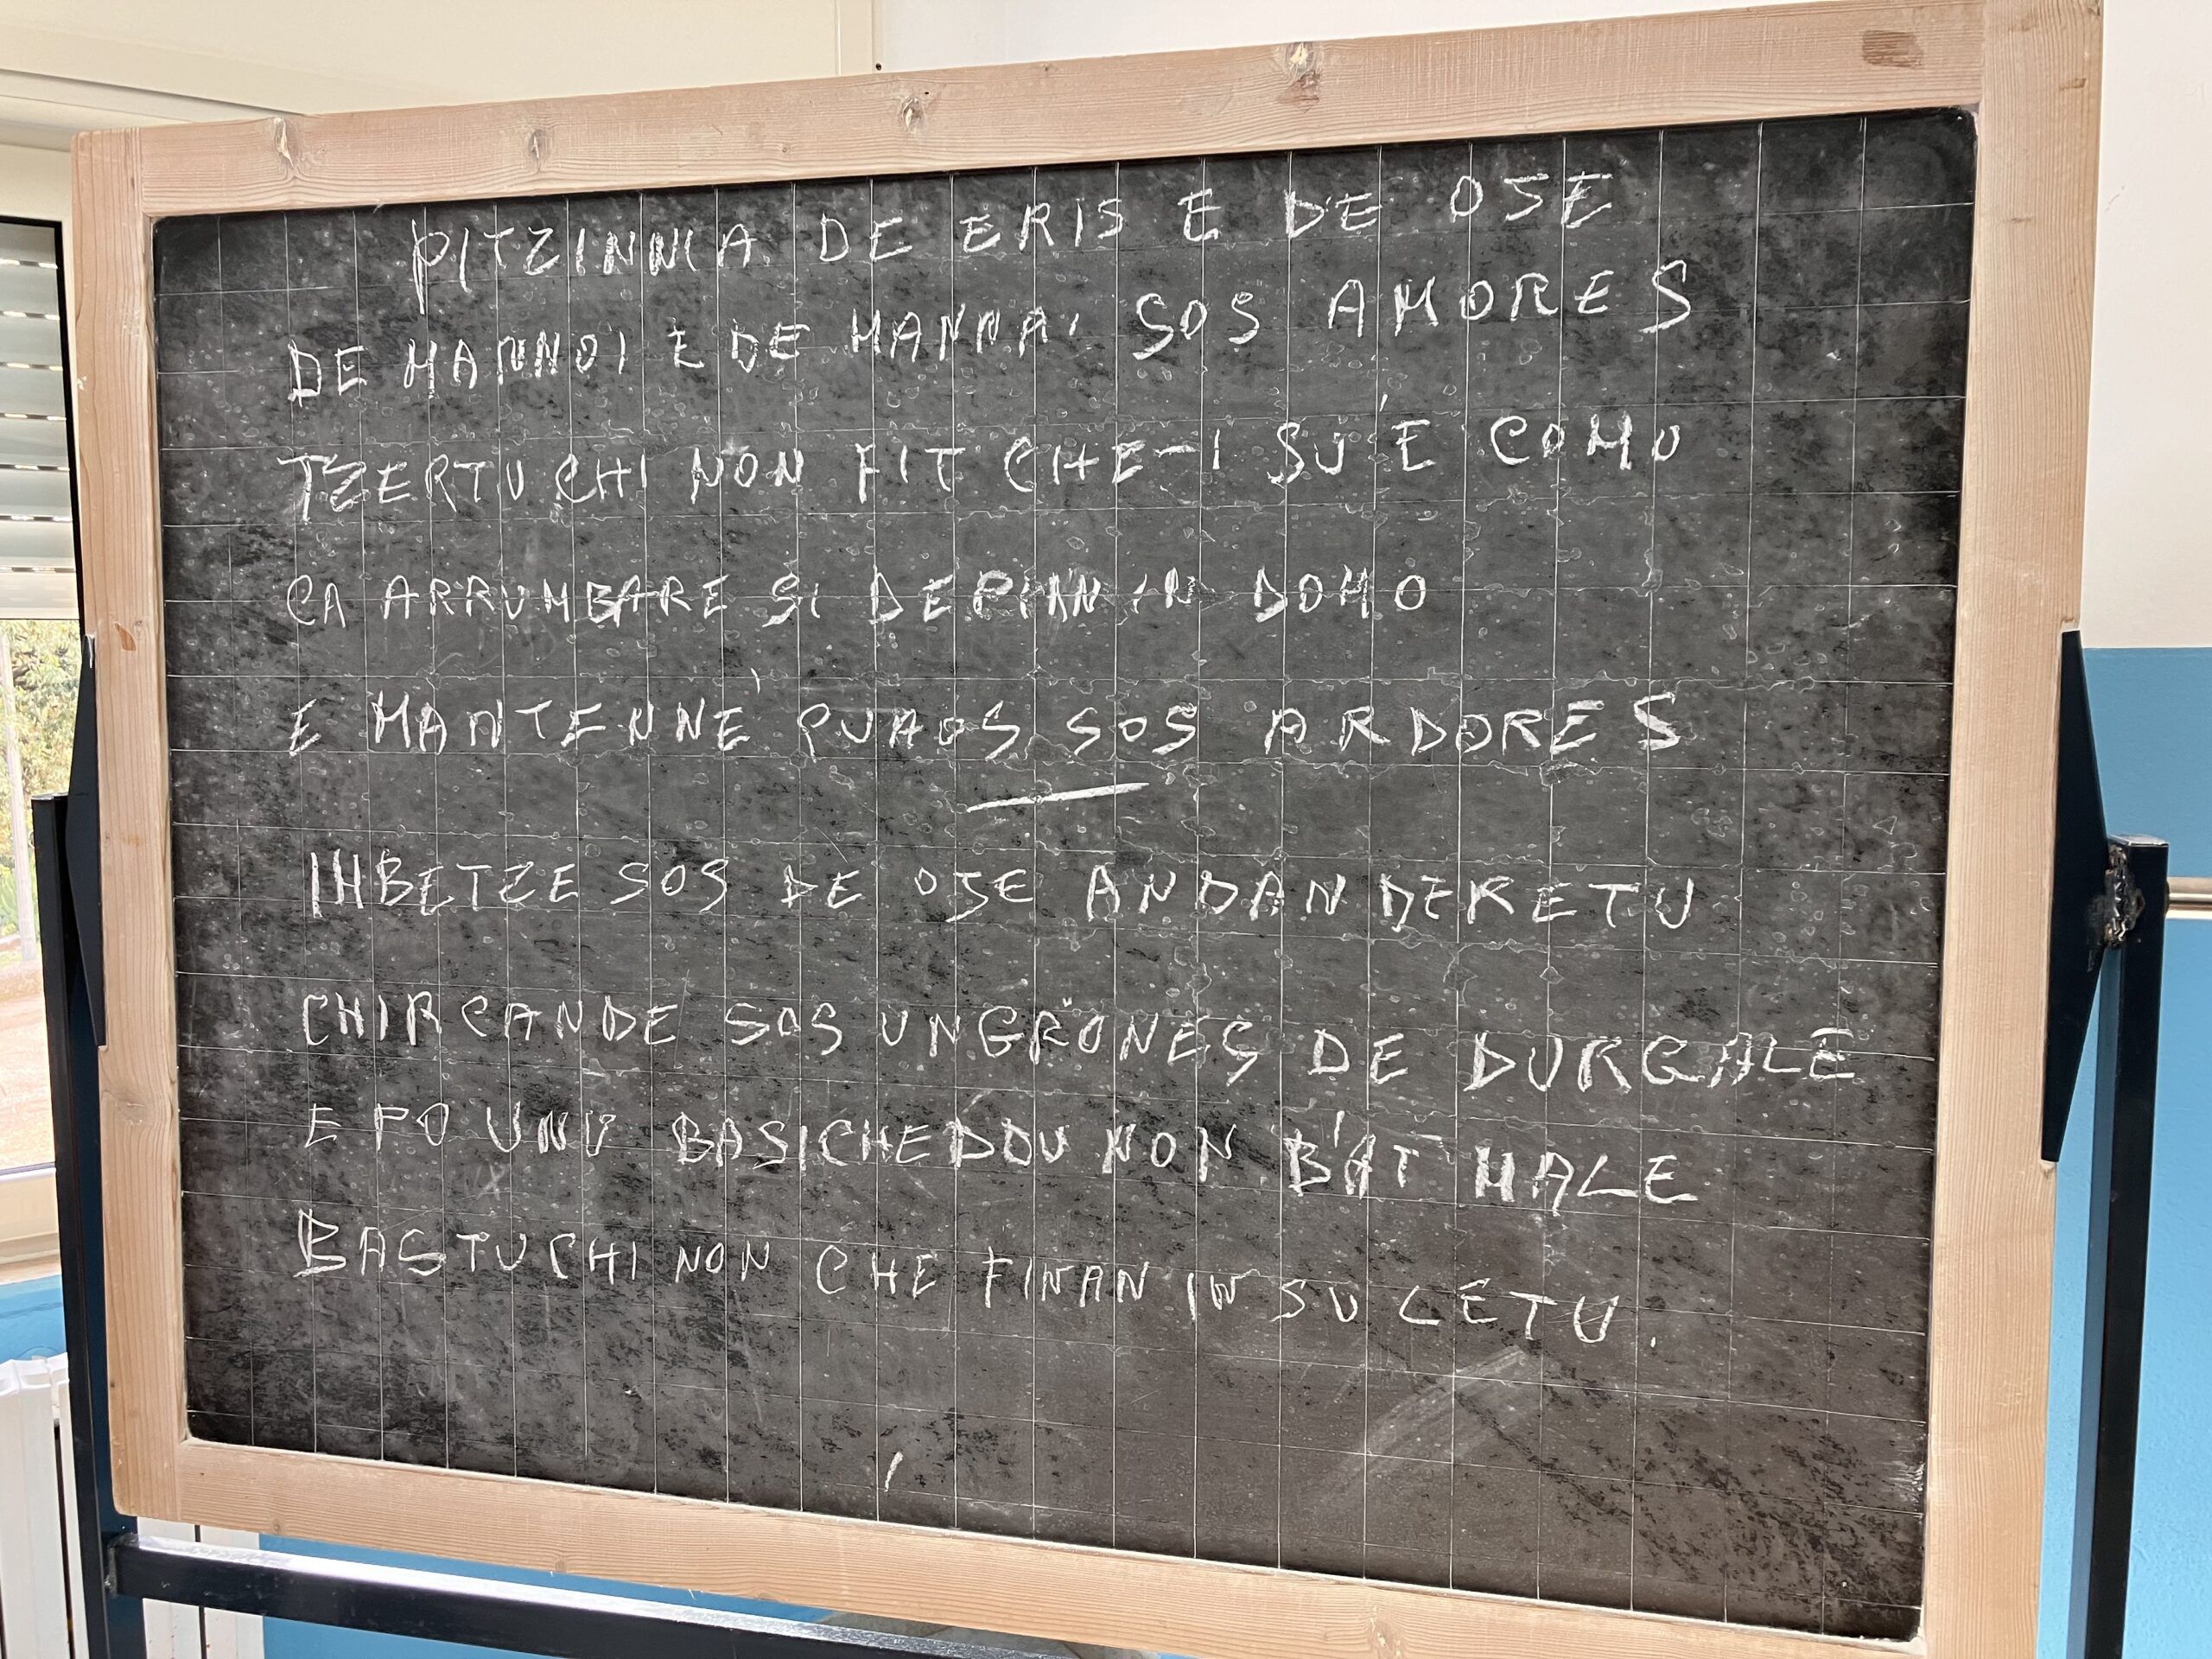 PITZINNIA DE ERIS E DE OJE
DE MANNOI E DE MANNAI SOS AMORES
TZERTU CHI NON FIT CHE-I SU'E COMO
CA ARRUMBARE SI DEPIAN IN DOMO
E MANTENNE CUAOS SOS ARDORES
IMBETZE SOS DE OJE ANDAN DERETU
CHIRCANDE SOS UNGRONES DE DURGALE
E PO UNU BASICHEDDU NON B'AT MALE
BASTU CHI NON CHE FINAN IN SU LETU.